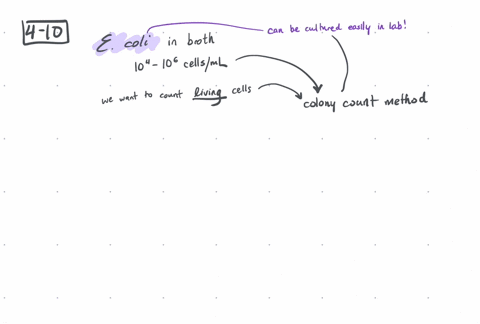 4-10
can be cultured easily in lab!
E. coli in broth
10⁴-10⁶ cells/mL
we want to count living cells
colony count method